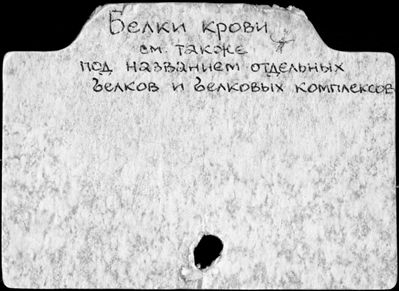 Белки крови
см. также
под названием отдельных
белков и белковых комплексов